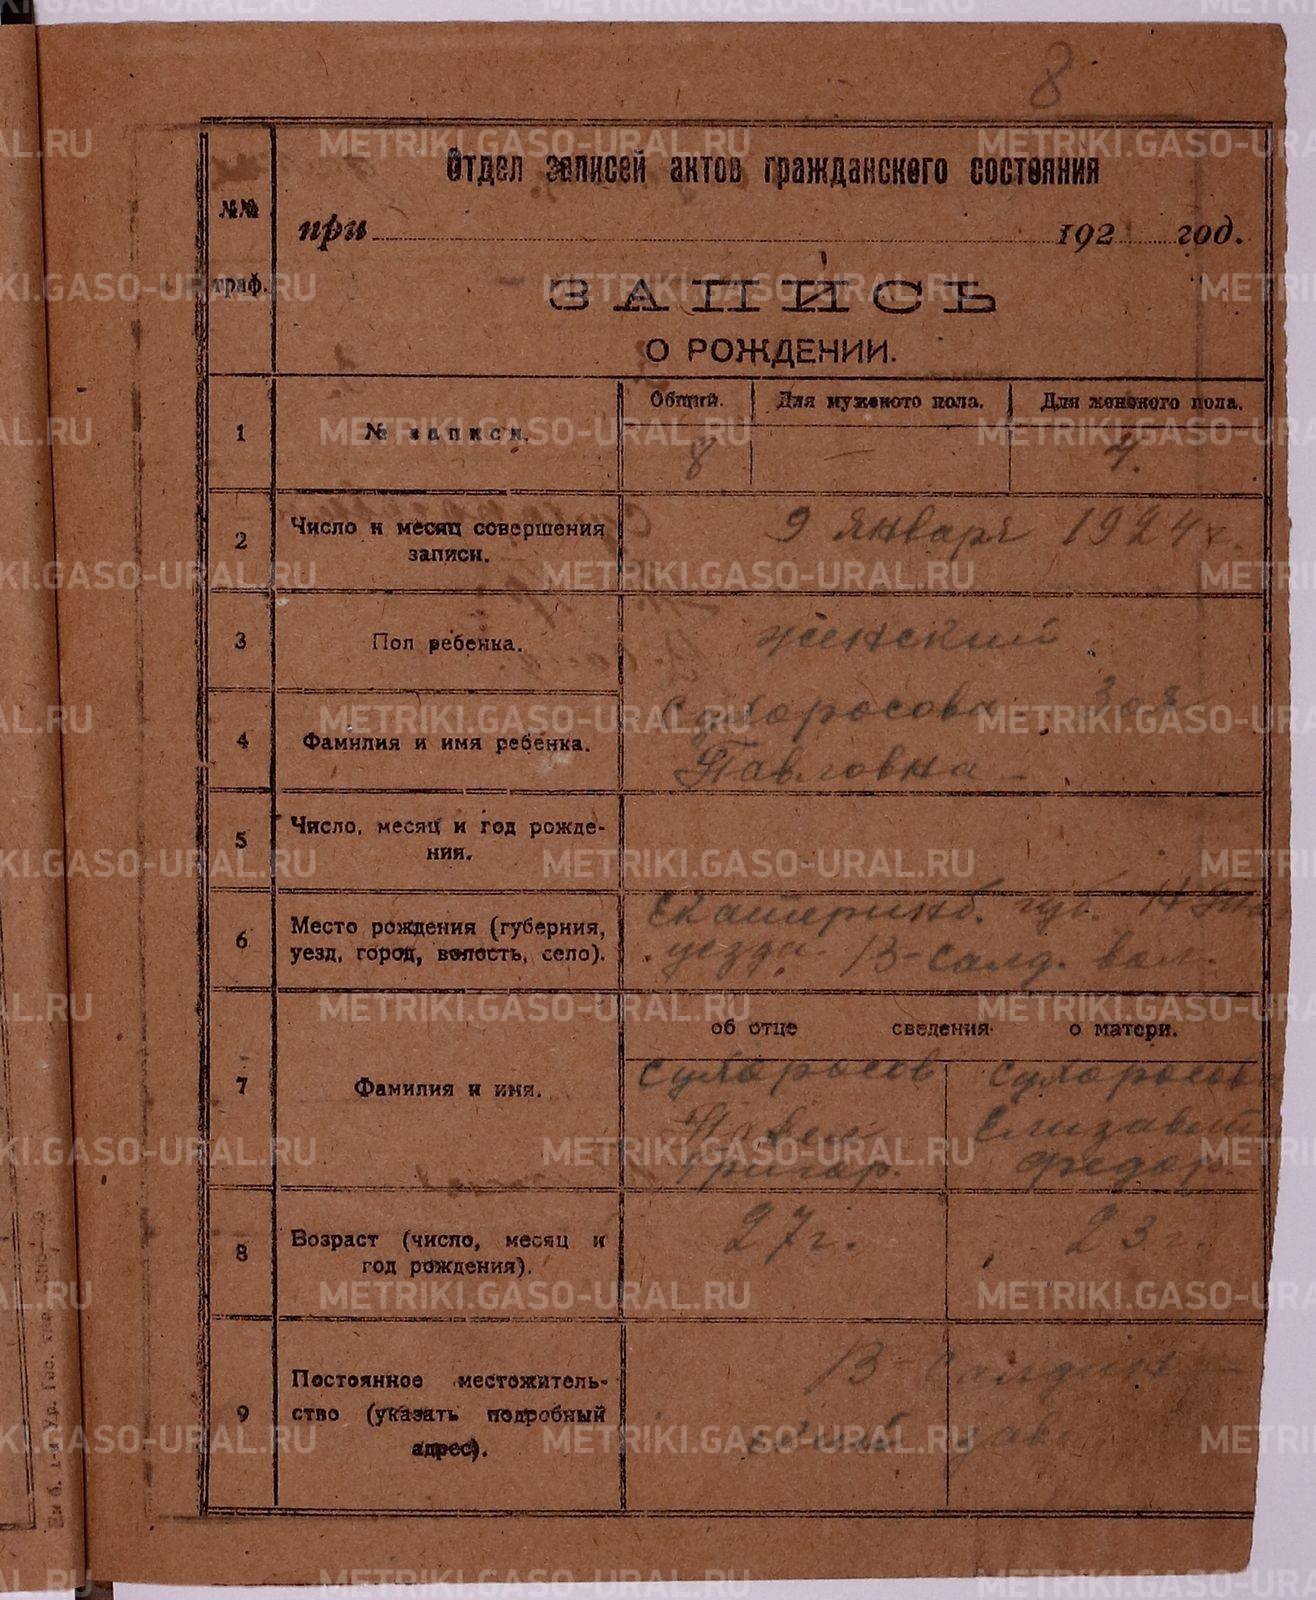 8
Отдел записей актов гражданского состояния
№№ граф.
при 192 год.
ЗАПИСЬ
О РОЖДЕНИИ.
Общий. Для мужского пола. Для женского пола.
1 № записи. 8 — 4.
2 Число и месяц совершения записи. 9 января 1924 г.
3 Пол ребенка. женский
4 Фамилия и имя ребенка. Сухоросова Зоя
Павловна
5 Число, месяц и год рожде-
ния.
6 Место рождения (губерния, Екатеринб. губ. Н Та
уезд, город, волость, село). уезда. В-Салд. вол.
об отце сведения о матери.
7 Фамилия и имя. Сухоросов Сухоросова
Павел Елизавет
Григор. Федор.
8 Возраст (число, месяц и 27 г. 23 г.
год рождения).
9 Постоянное местожитель-
ство (указать подробный
адрес).
В-Салдин
зав
METRIKI.GASO-URAL.RU